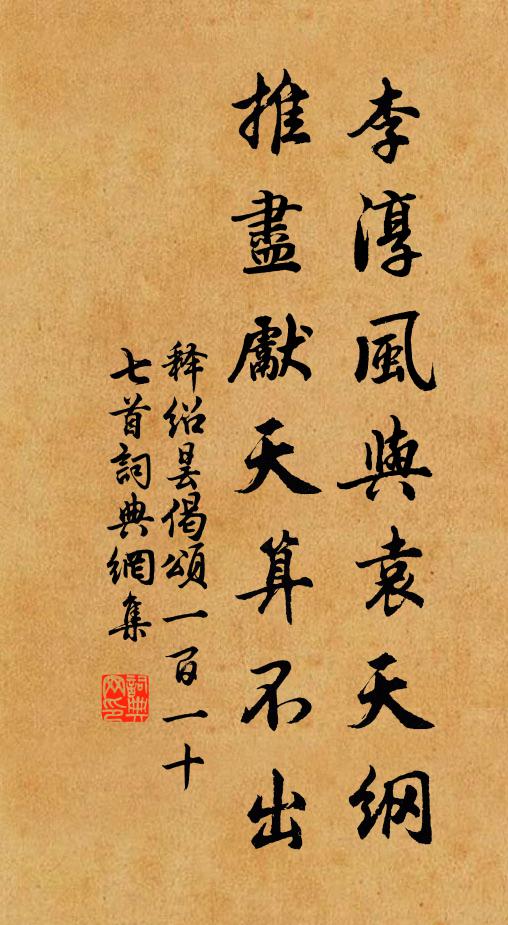 李淳風與袁天綱
推盡獻天算不出
釋紹曇偈頌一百一十
七首詞典網集
詞典
网印